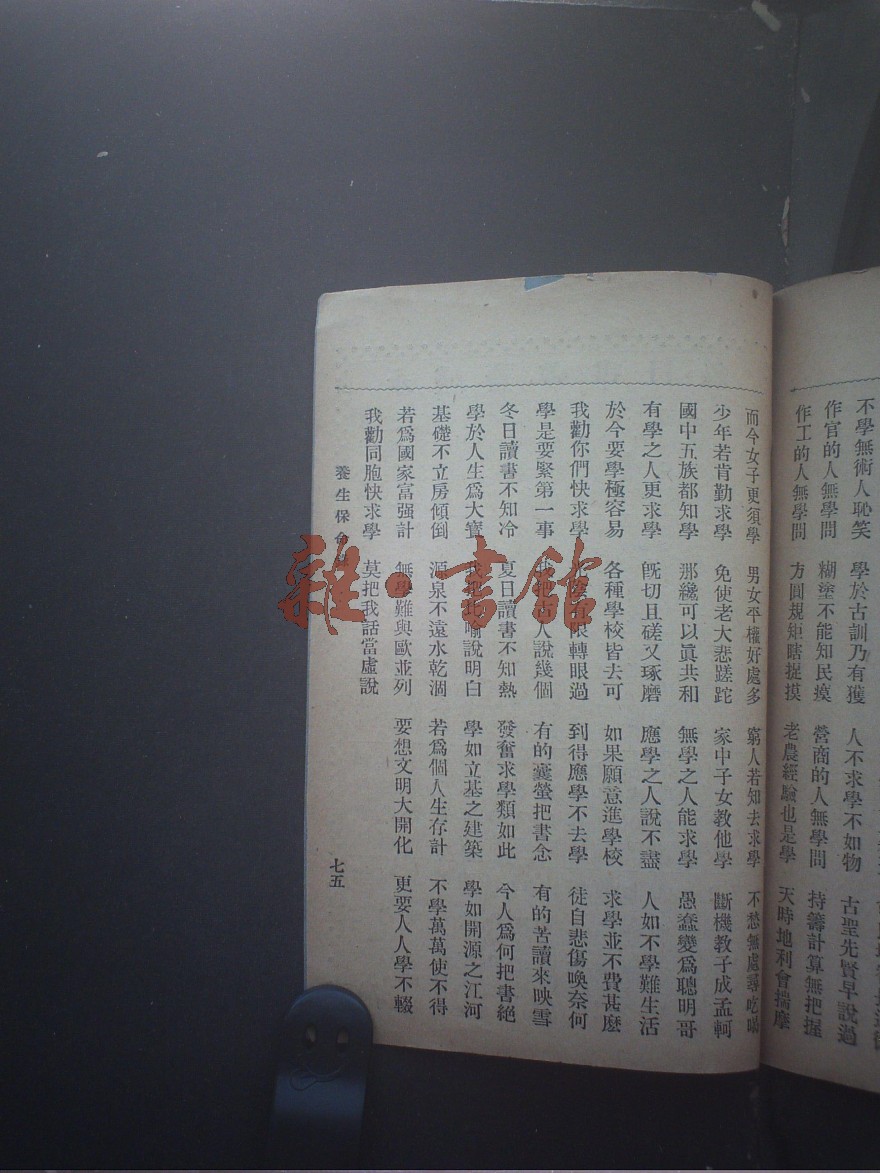 不學無術人恥笑 學於古訓乃有獲 人不求學不如物 古聖先賢早說過
作官的人無學問 糊塗不能知民瘼 營商的人無學問 持籌計算無把握
作工的人無學問 方圓規矩瞎捉摸 老農經驗也是學 天時地利會揣摩
而今女子更須學 男女平權好處多 窮人若知去求學 不愁無處尋吃喝
少年若肯勤求學 免使老大悲蹉跎 家中子女教他學 斷機教子成孟軻
國中五族都知學 那纔可以眞共和 無學之人能求學 愚蠢變爲聰明哥
有學之人更求學 旣切且磋又琢磨 應學之人說不盡 人如不學難生活
於今要學極容易 各種學校皆去可 如果願意進學校 求學並不費甚麽
我勸你們快求學 有限轉眼過 到得應學不去學 徒自悲傷喚奈何
學是要緊第一事 我把古人說幾個 有的囊螢把書念 有的苦讀來映雪
冬日讀書不知冷 夏日讀書不知熱 發奮求學類如此 今人爲何把書絕
學於人生爲大寶 我把比喻說明白 學如立基之建築 學如開源之江河
基礎不立房傾倒 源泉不遠水乾涸 若爲個人生存計 不學萬萬使不得
若爲國家富强計 無學難與歐並列 要想文明大開化 更要人人學不輟
我勸同胞快求學 莫把我話當虛說
養生保命
七五
雜·書館